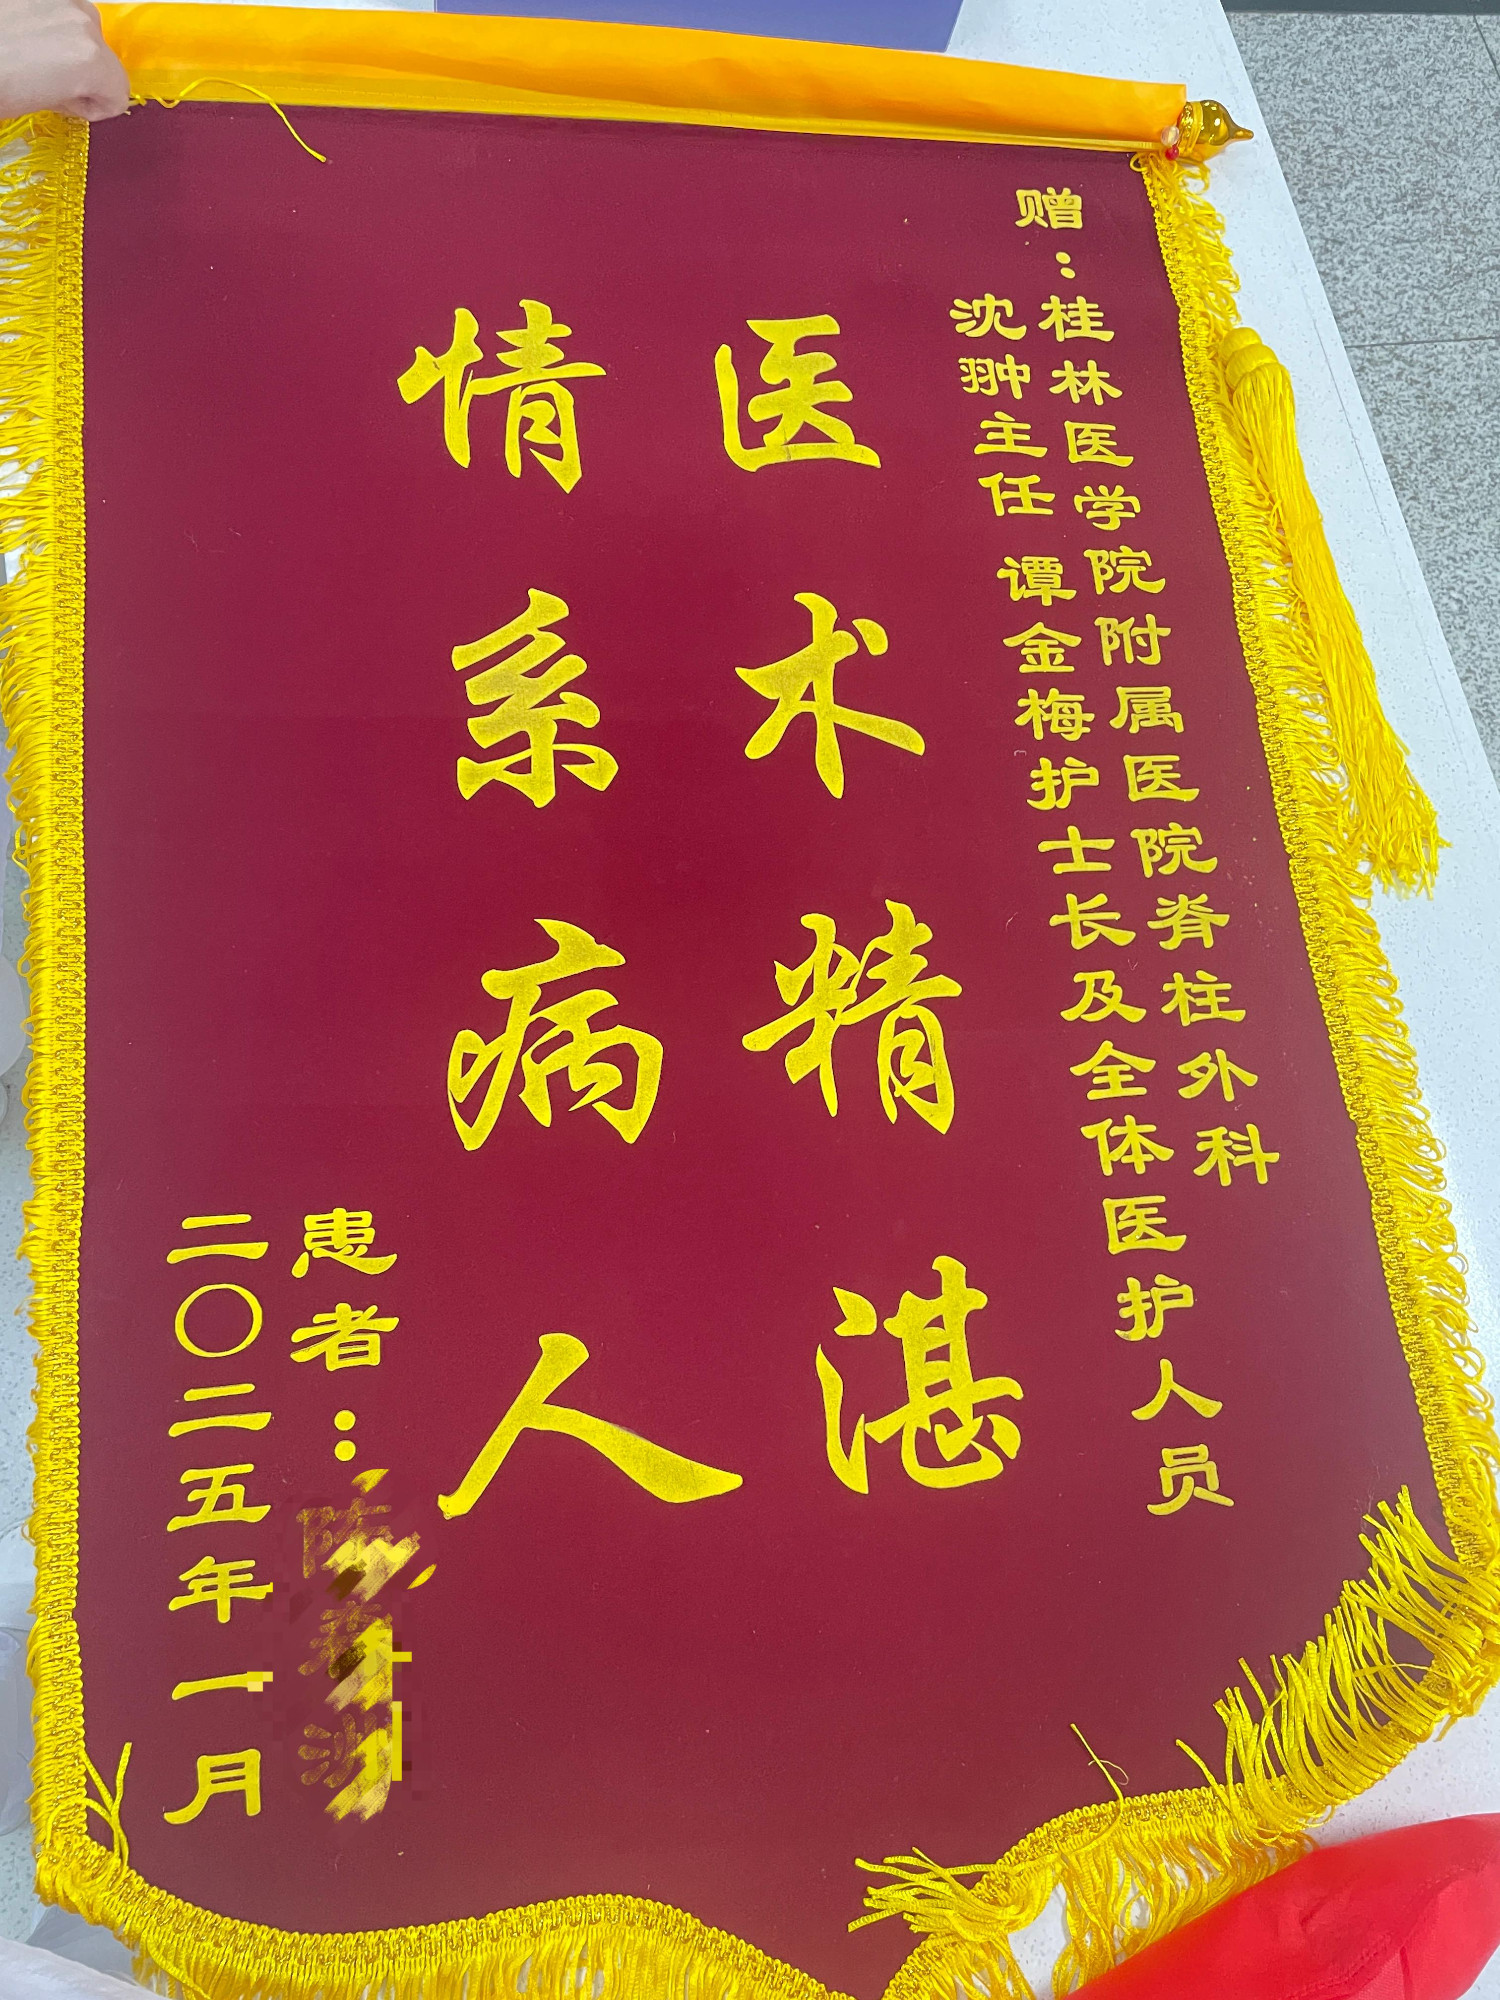 赠：桂林医学院附属医院脊柱外科
沈翀主任 谭金梅护士长及全体医护人员
医术精湛
情系病人
患者：
二〇二五年一月